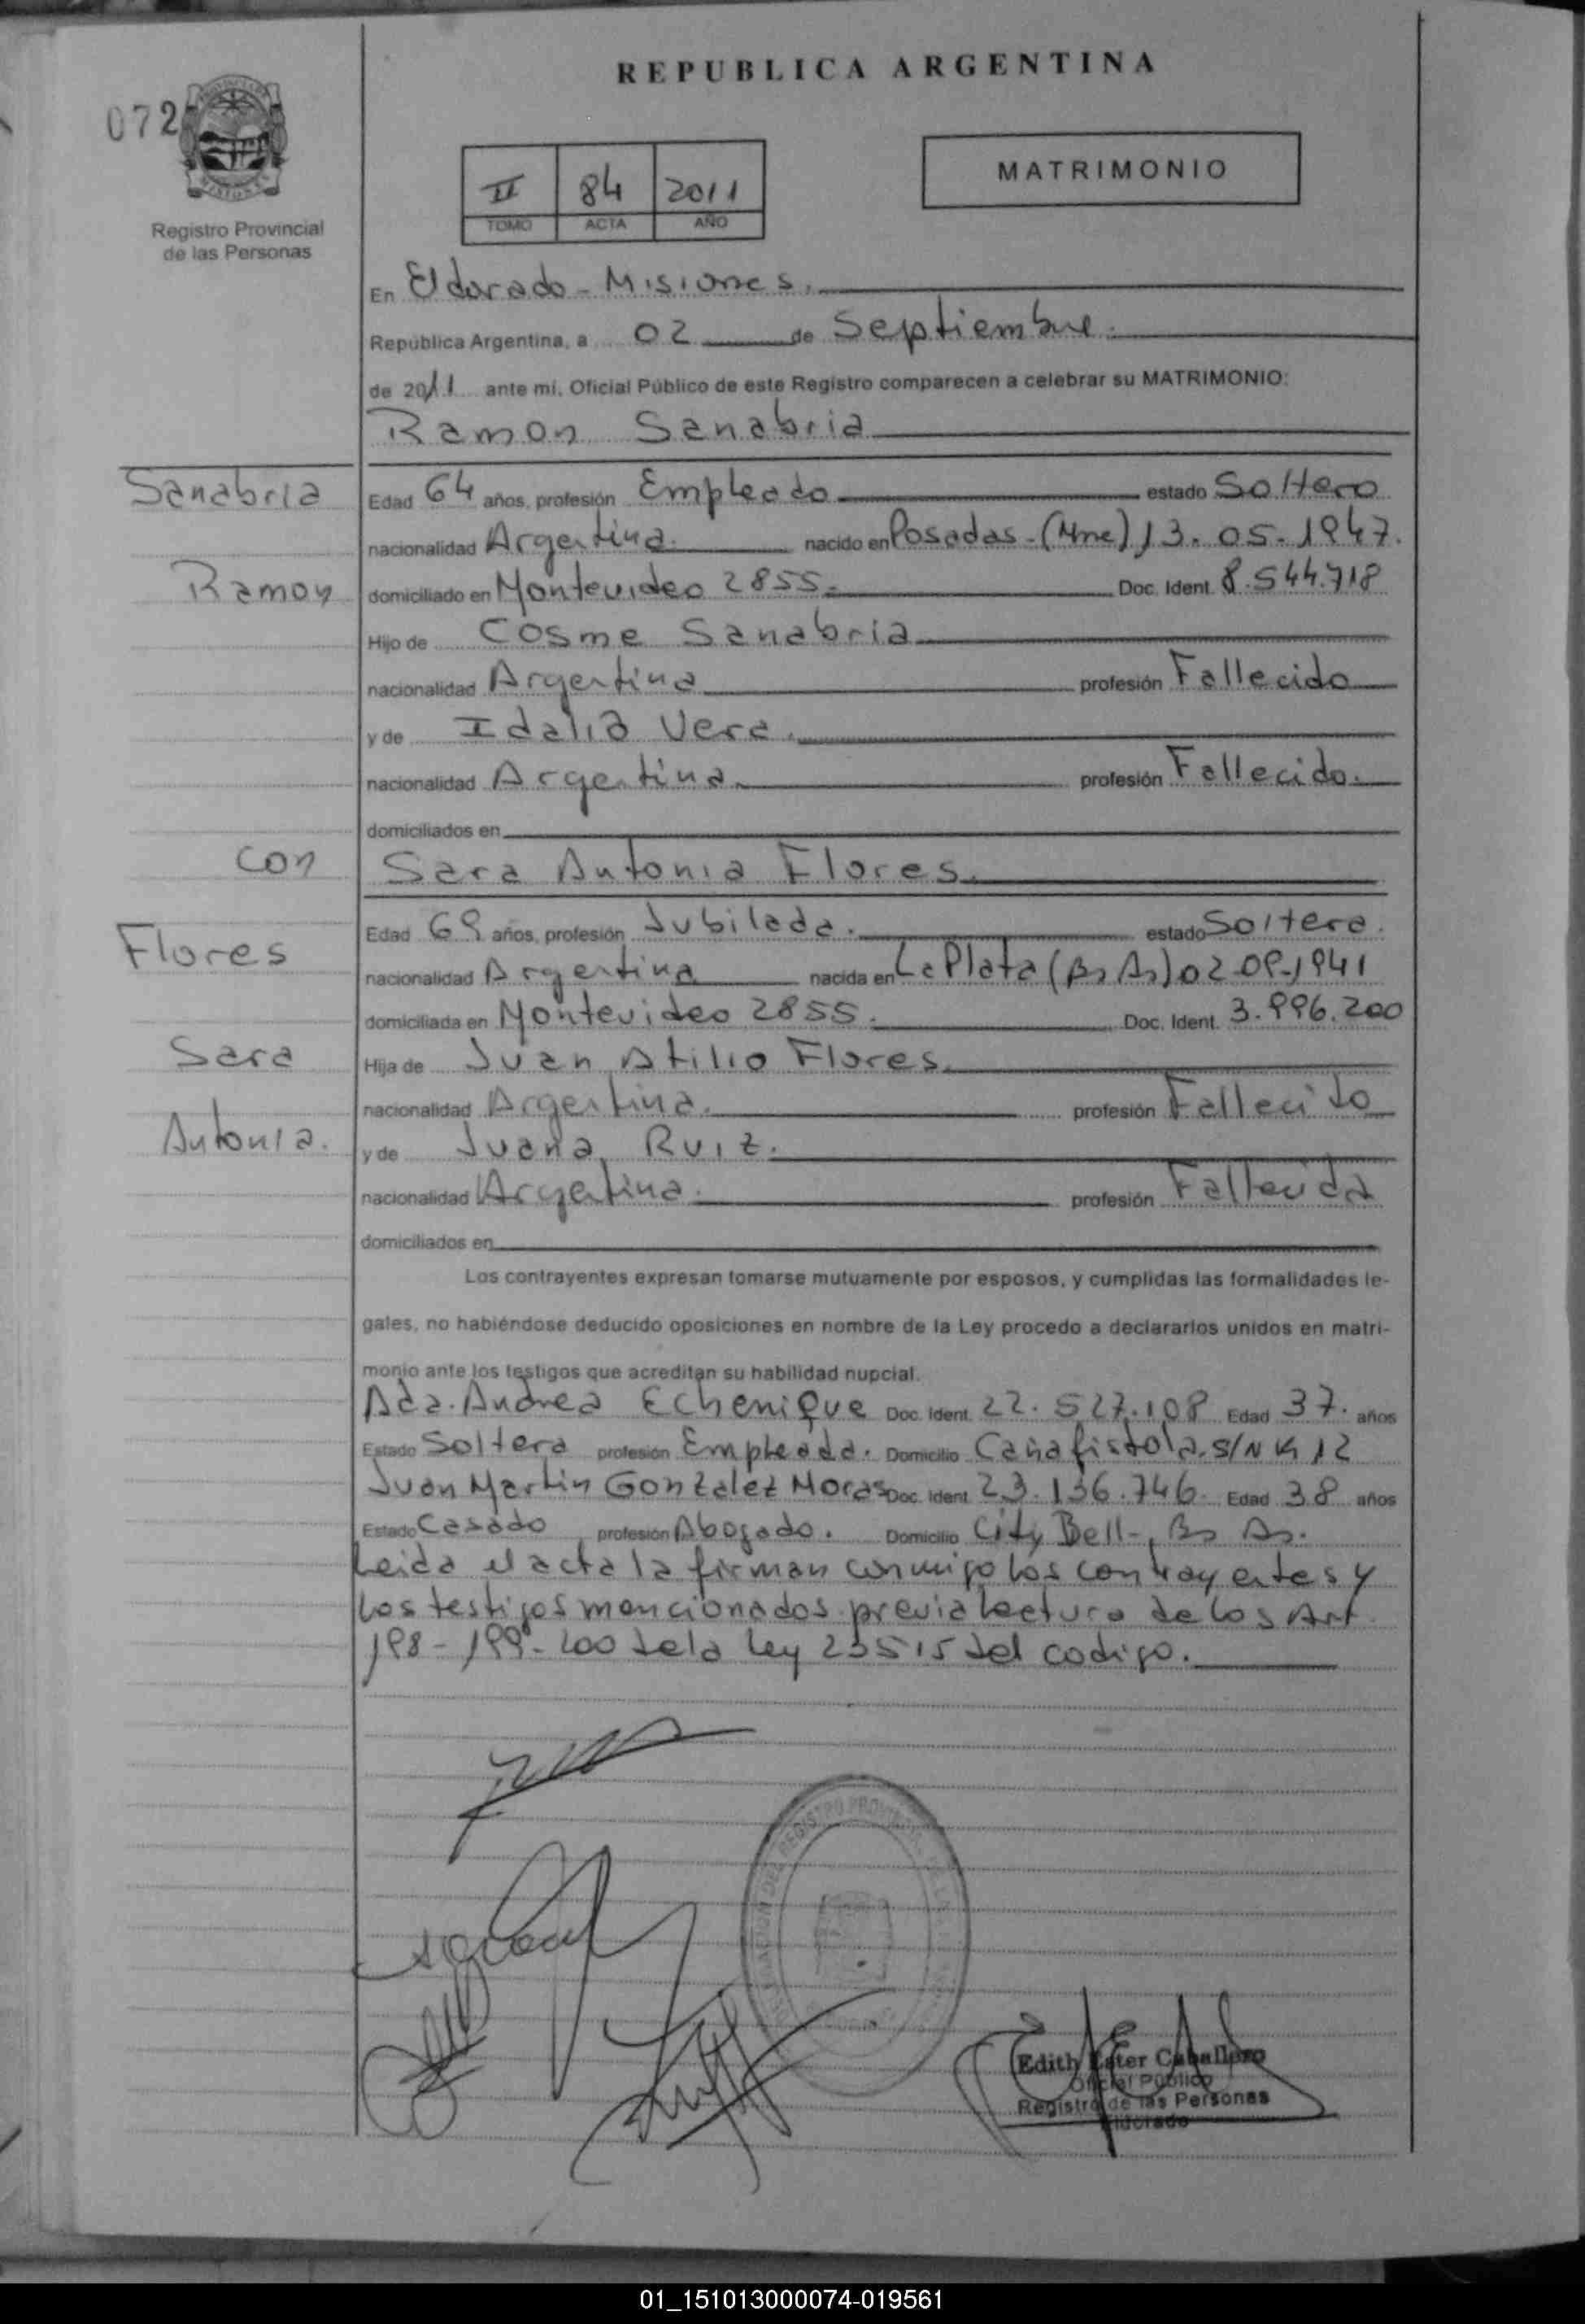 REPUBLICA ARGENTINA
072
Registro Provincial
de las Personas
II 84 2011
TOMO ACTA AÑO
MATRIMONIO
En Eldorado - Misiones.
República Argentina, a 02 de Septiembre.
de 2011 ante mí, Oficial Público de este Registro comparecen a celebrar su MATRIMONIO:
Ramon Sanabria
Sanabria
Edad 64 años, profesión Empleado estado Soltero
nacionalidad Argentina. nacido en Posadas - (Mnes) 13. 05. 1947.
Ramon
domiciliado en Montevideo 2855. Doc. Ident. 8.544.718
Hijo de Cosme Sanabria
nacionalidad Argentina profesión Fallecido
y de Idalia Vera.
nacionalidad Argentina. profesión Fallecido.
domiciliados en
con
Sara Antonia Flores.
Flores
Edad 69 años, profesión Jubilada. estado Soltera.
nacionalidad Argentina nacida en La Plata (Bs As) 02-09-1941
domiciliada en Montevideo 2855. Doc. Ident. 3.996.200
Sara
Hija de Juan Atilio Flores.
nacionalidad Argentina. profesión Fallecido
Antonia.
y de Juana Ruiz.
nacionalidad Argentina. profesión Fallecida
domiciliados en
Los contrayentes expresan tomarse mutuamente por esposos, y cumplidas las formalidades le-
gales, no habiéndose deducido oposiciones en nombre de la Ley procedo a declararlos unidos en matri-
monio ante los testigos que acreditan su habilidad nupcial.
Ada. Andrea Echenique Doc. Ident. 22.527.108 Edad 37. años
Estado Soltera profesión Empleada. Domicilio Cañafistola. S/N K 12
Juan Martin Gonzalez Moras Doc. Ident. 23.136.746. Edad 38 años
Estado Casado profesión Abogado. Domicilio City Bell-, Bs As.
Leida el acta la firman conmigo los contrayentes y
los testigos mencionados previa lectura de los Art.
198 - 199 - 200 de la ley 23515 del codigo.
Edith Ester Caballero
Oficial Público
Registro de las Personas
Eldorado
01_151013000074-019561